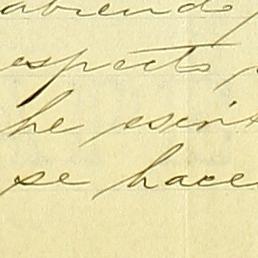 abiendo
especto
he escrit
se hace